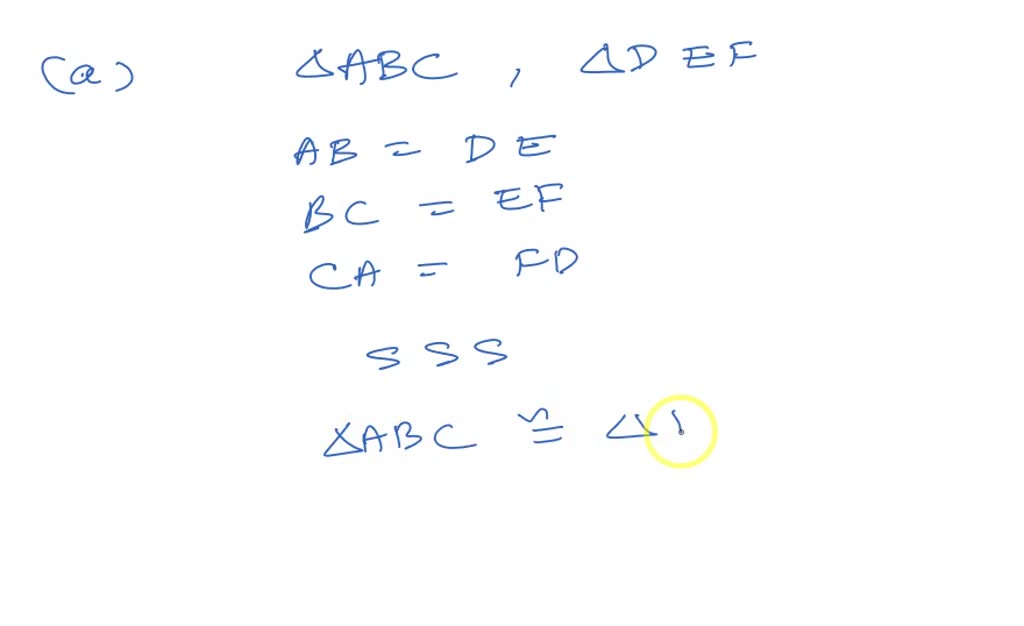 (a) △ABC , △DEF
AB = DE
BC = EF
CA = FD
SSS
△ABC ≅ △